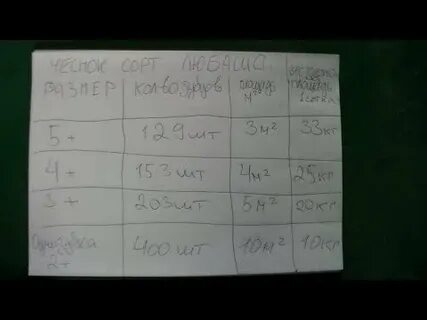 ЧЕСНОК СОРТ ЛЮБАША
РАЗМЕР КОЛ-ВО ЗУБОВ площадь М²
5+ 129 шт 3 м² 33 кг
4+ 153 шт 4 м² 25 кг
3+ 203 шт 5 м² 20 кг
Однозубка 2+ 400 шт 10 м² 10 кг